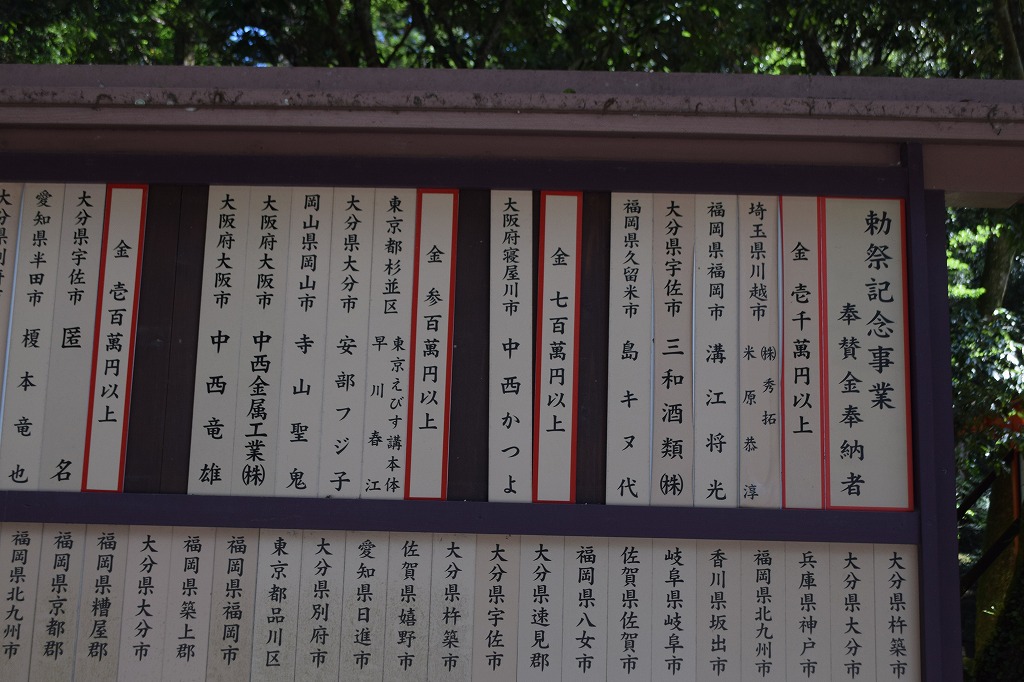 勅祭記念事業
奉賛金奉納者
金 壱千萬円以上
埼玉県川越市 ㈱秀拓 米原恭淳
福岡県福岡市 溝江将光
大分県宇佐市 三和酒類㈱
福岡県久留米市 島キヌ代
金 七百萬円以上
大阪府寝屋川市 中西かつよ
金 参百萬円以上
東京都杉並区 東京えびす講本体 早川春江
大分県大分市 安部フジ子
岡山県岡山市 寺山聖鬼
大阪府大阪市 中西金属工業㈱
大阪府大阪市 中西竜雄
金 壱百萬円以上
大分県宇佐市 匿名
愛知県半田市 榎本竜也
大分県別府
大分県杵築市
大分県大分市
兵庫県神戸市
福岡県北九州市
香川県坂出市
岐阜県岐阜市
佐賀県佐賀市
福岡県八女市
大分県速見郡
大分県宇佐市
大分県杵築市
佐賀県嬉野市
愛知県日進市
大分県別府市
東京都品川区
福岡県福岡市
福岡県築上郡
大分県大分市
福岡県糟屋郡
福岡県京都郡
福岡県北九州市